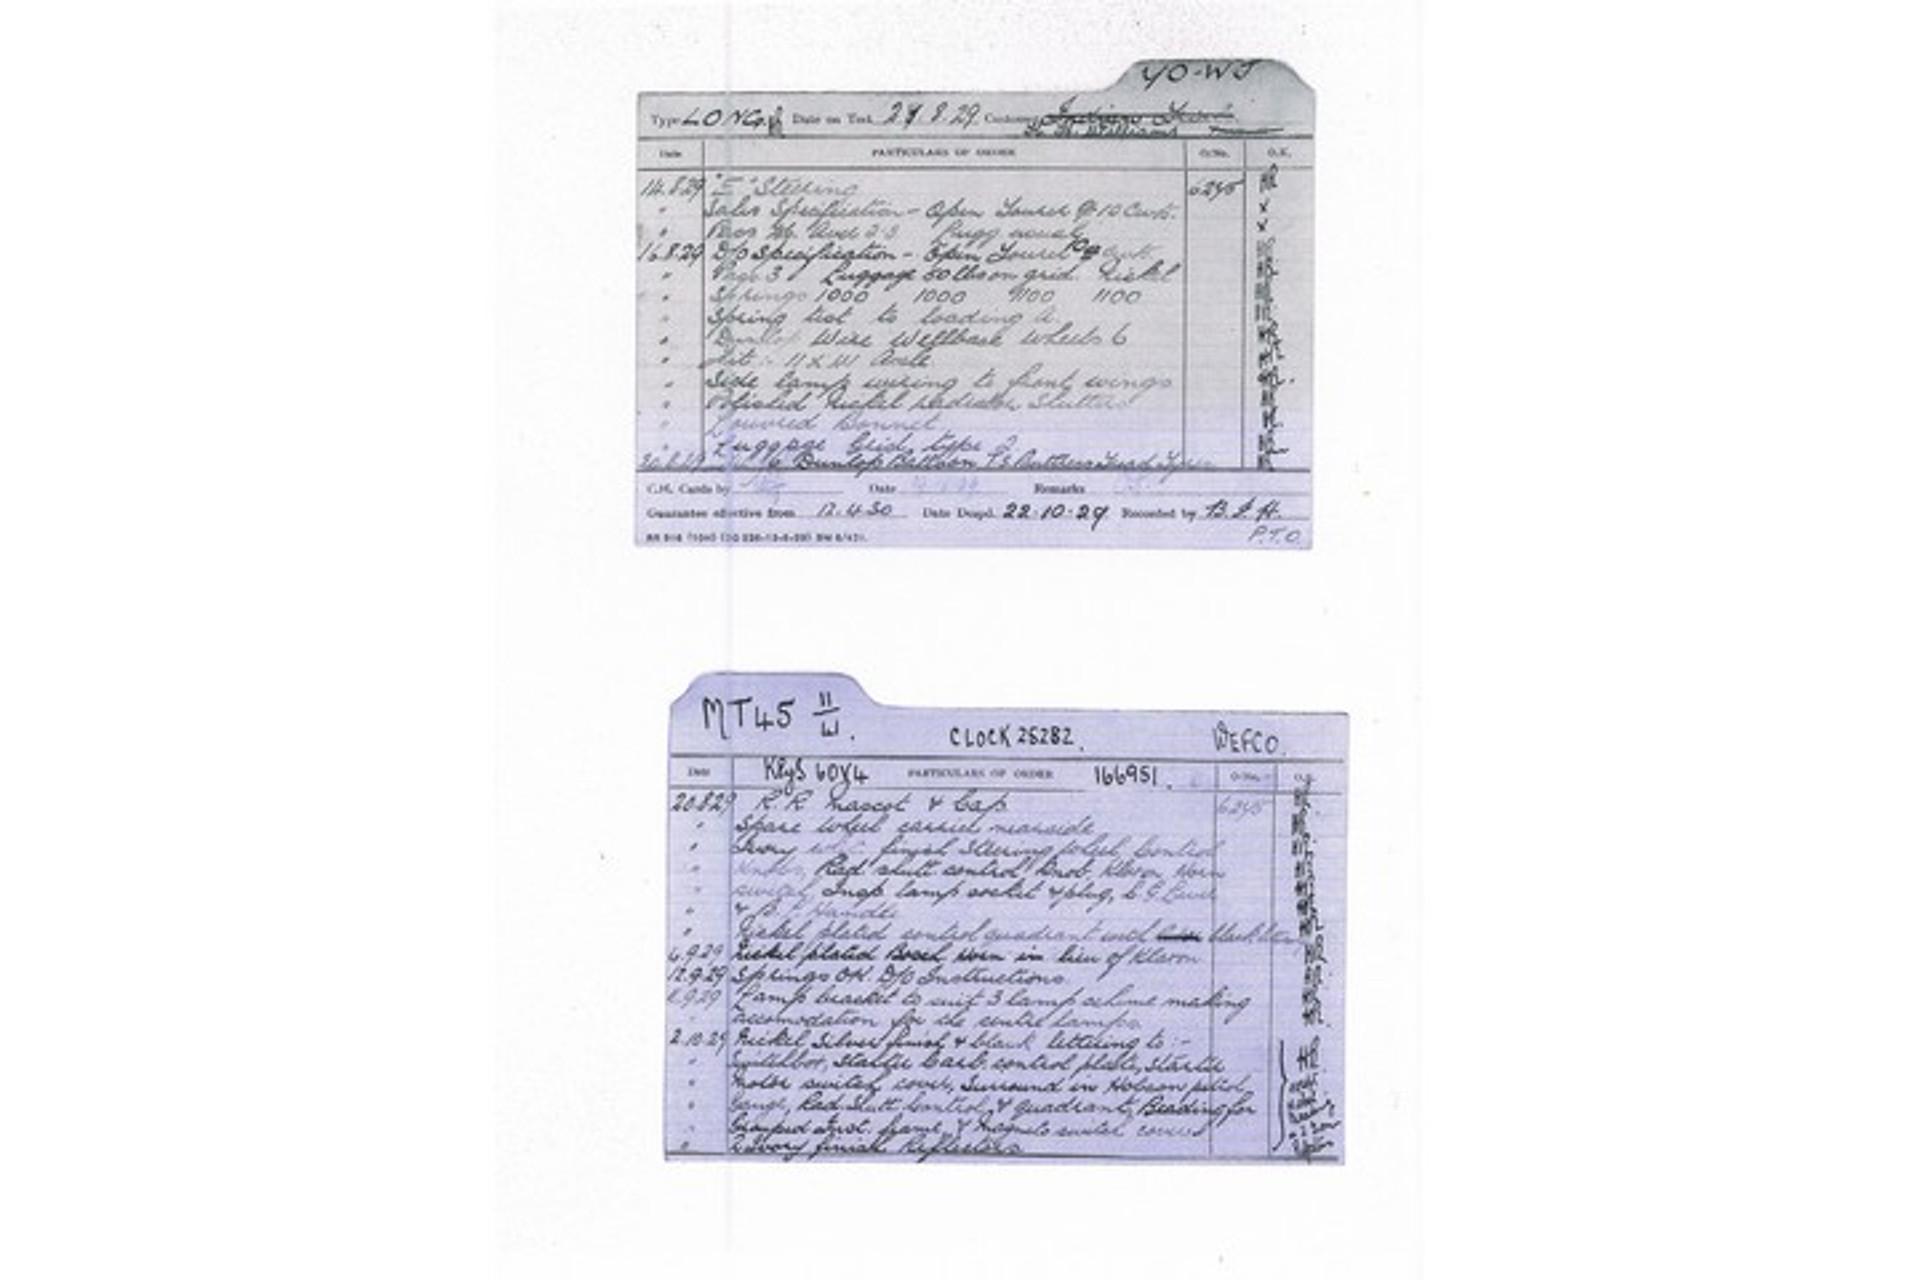 40-WJ
Type LONG Date on Test 8.29 Customer
Williams
Date PARTICULARS OF ORDER O/No. O.K.
14.8.29 "E" Steering
" Sales Specification - Open Tourer 10 Cwt. x
" x
16.8.29 D/o Specification - Open Tourer 10 cwt.
" Page 3 Luggage 50 lbs on grid. Nickel
" Springs 1000 1000 1100 1100
" Spring test to loading A.
" Dunlop Wire Wellbase Wheels 6
" 11 x W Axle
" Side lamp wiring to front wings
" Polished Nickel radiator Shutters
" Louvred Bonnet
" Luggage Grid, type 2
Dunlop Balloon
C.H. Cards by Date Remarks
Guarantee effective from 12.4.30 Date Despd. 22-10-29 Recorded by
P.T.O.
MT45 11/W.
CLOCK 25282. WEFCO.
Date Keys PARTICULARS OF ORDER 166951. O/No.
20.8.29 R.R mascot & Cap.
" Spare wheel carrier nearside
" Ivory finish Steering Wheel, Control
" knobs, Rad. shutt control knob, Klaxon Horn
" switch, Insp. lamp socket & plug,
" & Handle
" Nickel plated control quadrant with black
6.9.29 Nickel plated Bosch Horn in lieu of Klaxon
12.9.29 Springs OK. D/O Instructions.
9.29 Lamp bracket to suit 3 lamp scheme making
" accomodation for the centre lamps.
2.10.29 Nickel Silver finish & black lettering to :-
" Switchbox, Starter Carb. control plate, Starter
" Motor switch cover, Surround in Hobson petrol
" Gauge, Rad. Shutt. Control, & quadrant, Beading for
" Grouped Inst. frame, & Magneto switch cover
" Ivory finish Reflectors